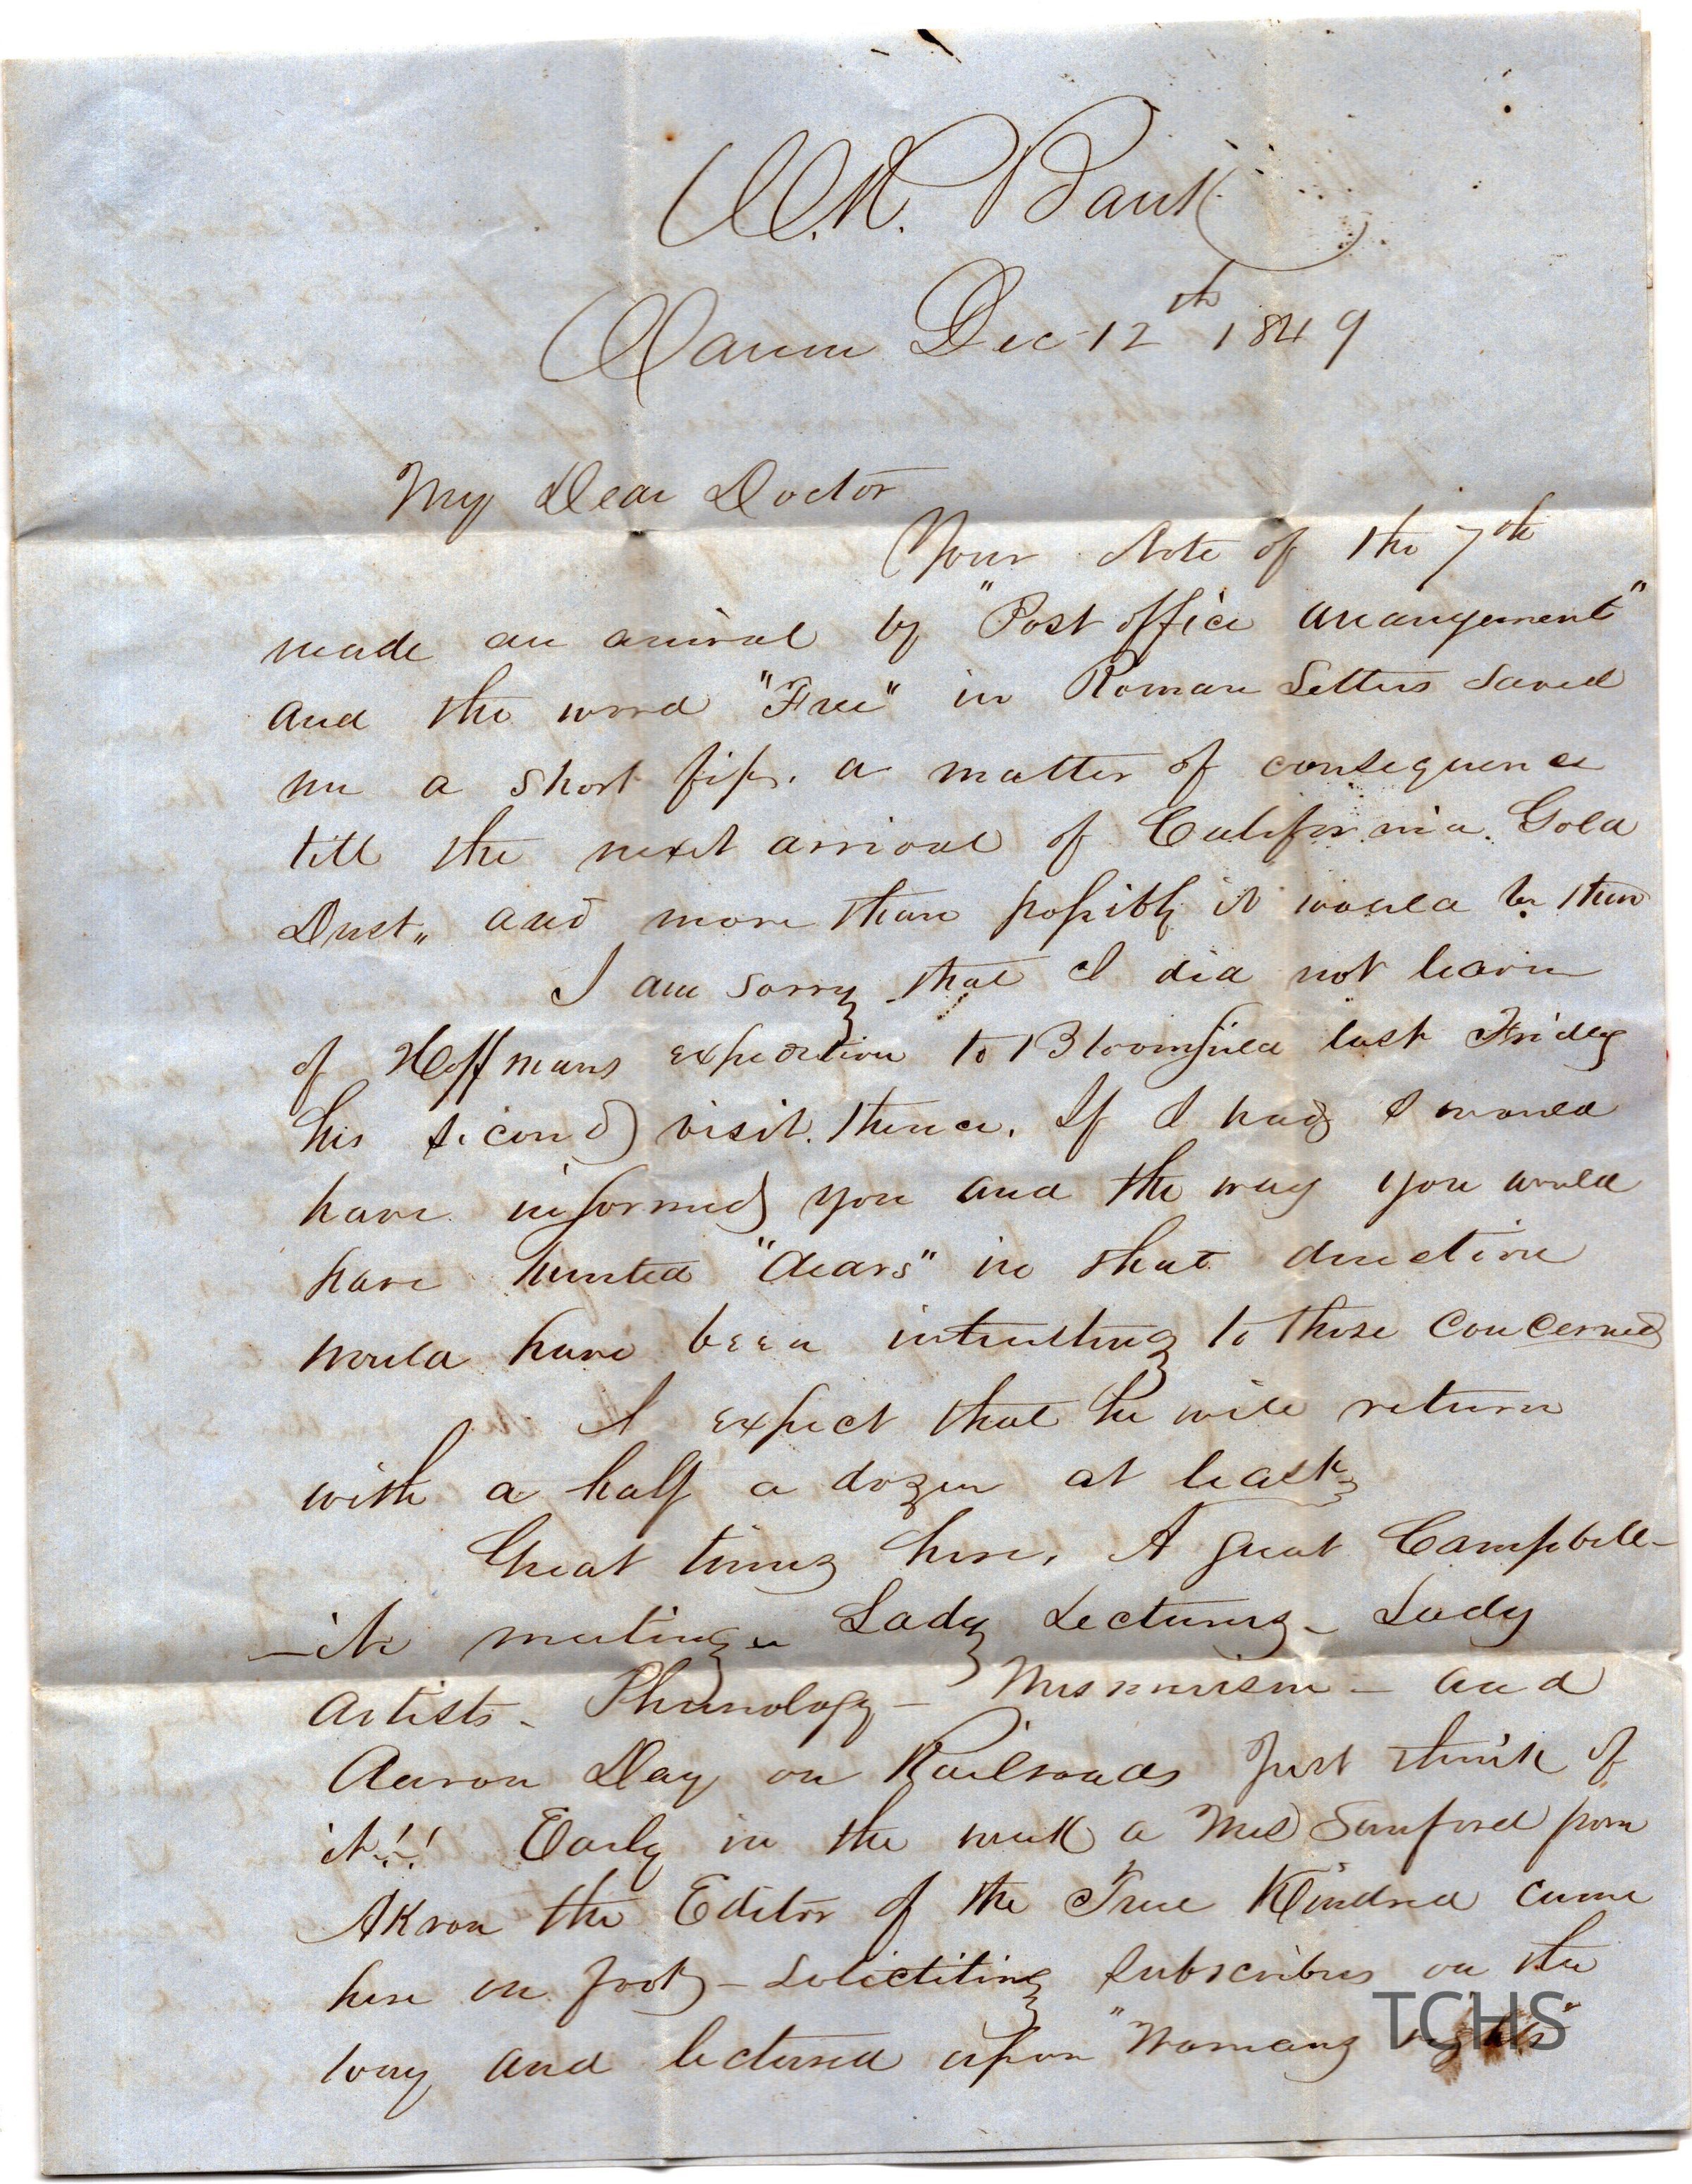 W.R. Bank
Warren Dec 12th 1849
My Dear Doctor
Your Note of the 7th
made an arrival by "Post office arrangement"
and the word "Free" in Roman Letters saved
me a short fip. a matter of consequence
till the next arrival of California Gold
Dust„ and more than possibly it would be then
I am sorry that I did not learn
of Hoffmans expedition to Bloomfield last Friday
his second visit thence. If I had I would
have informed you and the way you would
have hunted "dears" in that direction
would have been interesting to those concerned
I expect that he will return
with a half a dozen at least
Great times here. A great Campbell-
-ite meeting – Lady Lectures – Lady
Artists – Phrenology – Mesmerism – and
Aaron Day on Railroads Just think of
it!! Early in the week a Mrs Sanford from
Akron the Editor of the True Kindred came
here on foot – solictiting subscribers on the
way and lectured upon "Womans rights"
TCHS